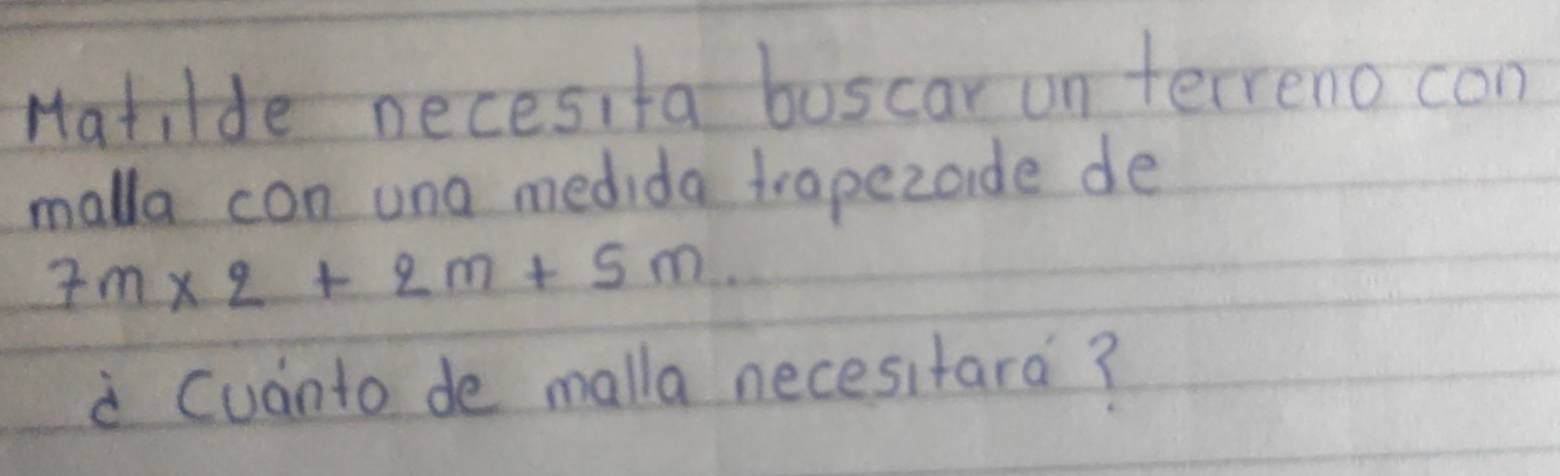 Matilde necesita buscar un terreno con
malla con una medida trapezoide de
7m x 2 + 2m + 5m.
¿Cuánto de malla necesitará?